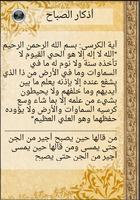 أذكار الصباح
آية الكرسى: بسم الله الرحمن الرحيم
"الله لا إله إلا هو الحي القيوم لا
تأخذه سنة ولا نوم له ما في
السماوات وما في الأرض من ذا الذي
يشفع عنده إلا بإذنه يعلم ما بين
أيديهم وما خلفهم ولا يحيطون
بشيء من علمه إلا بما شاء وسع
كرسيه السماوات والأرض ولا يؤوده
حفظهما وهو العلي العظيم"
من قالها حين يصبح أجير من الجن
حتى يمسى ومن قالها حين يمسى
أجير من الجن حتى يصبح